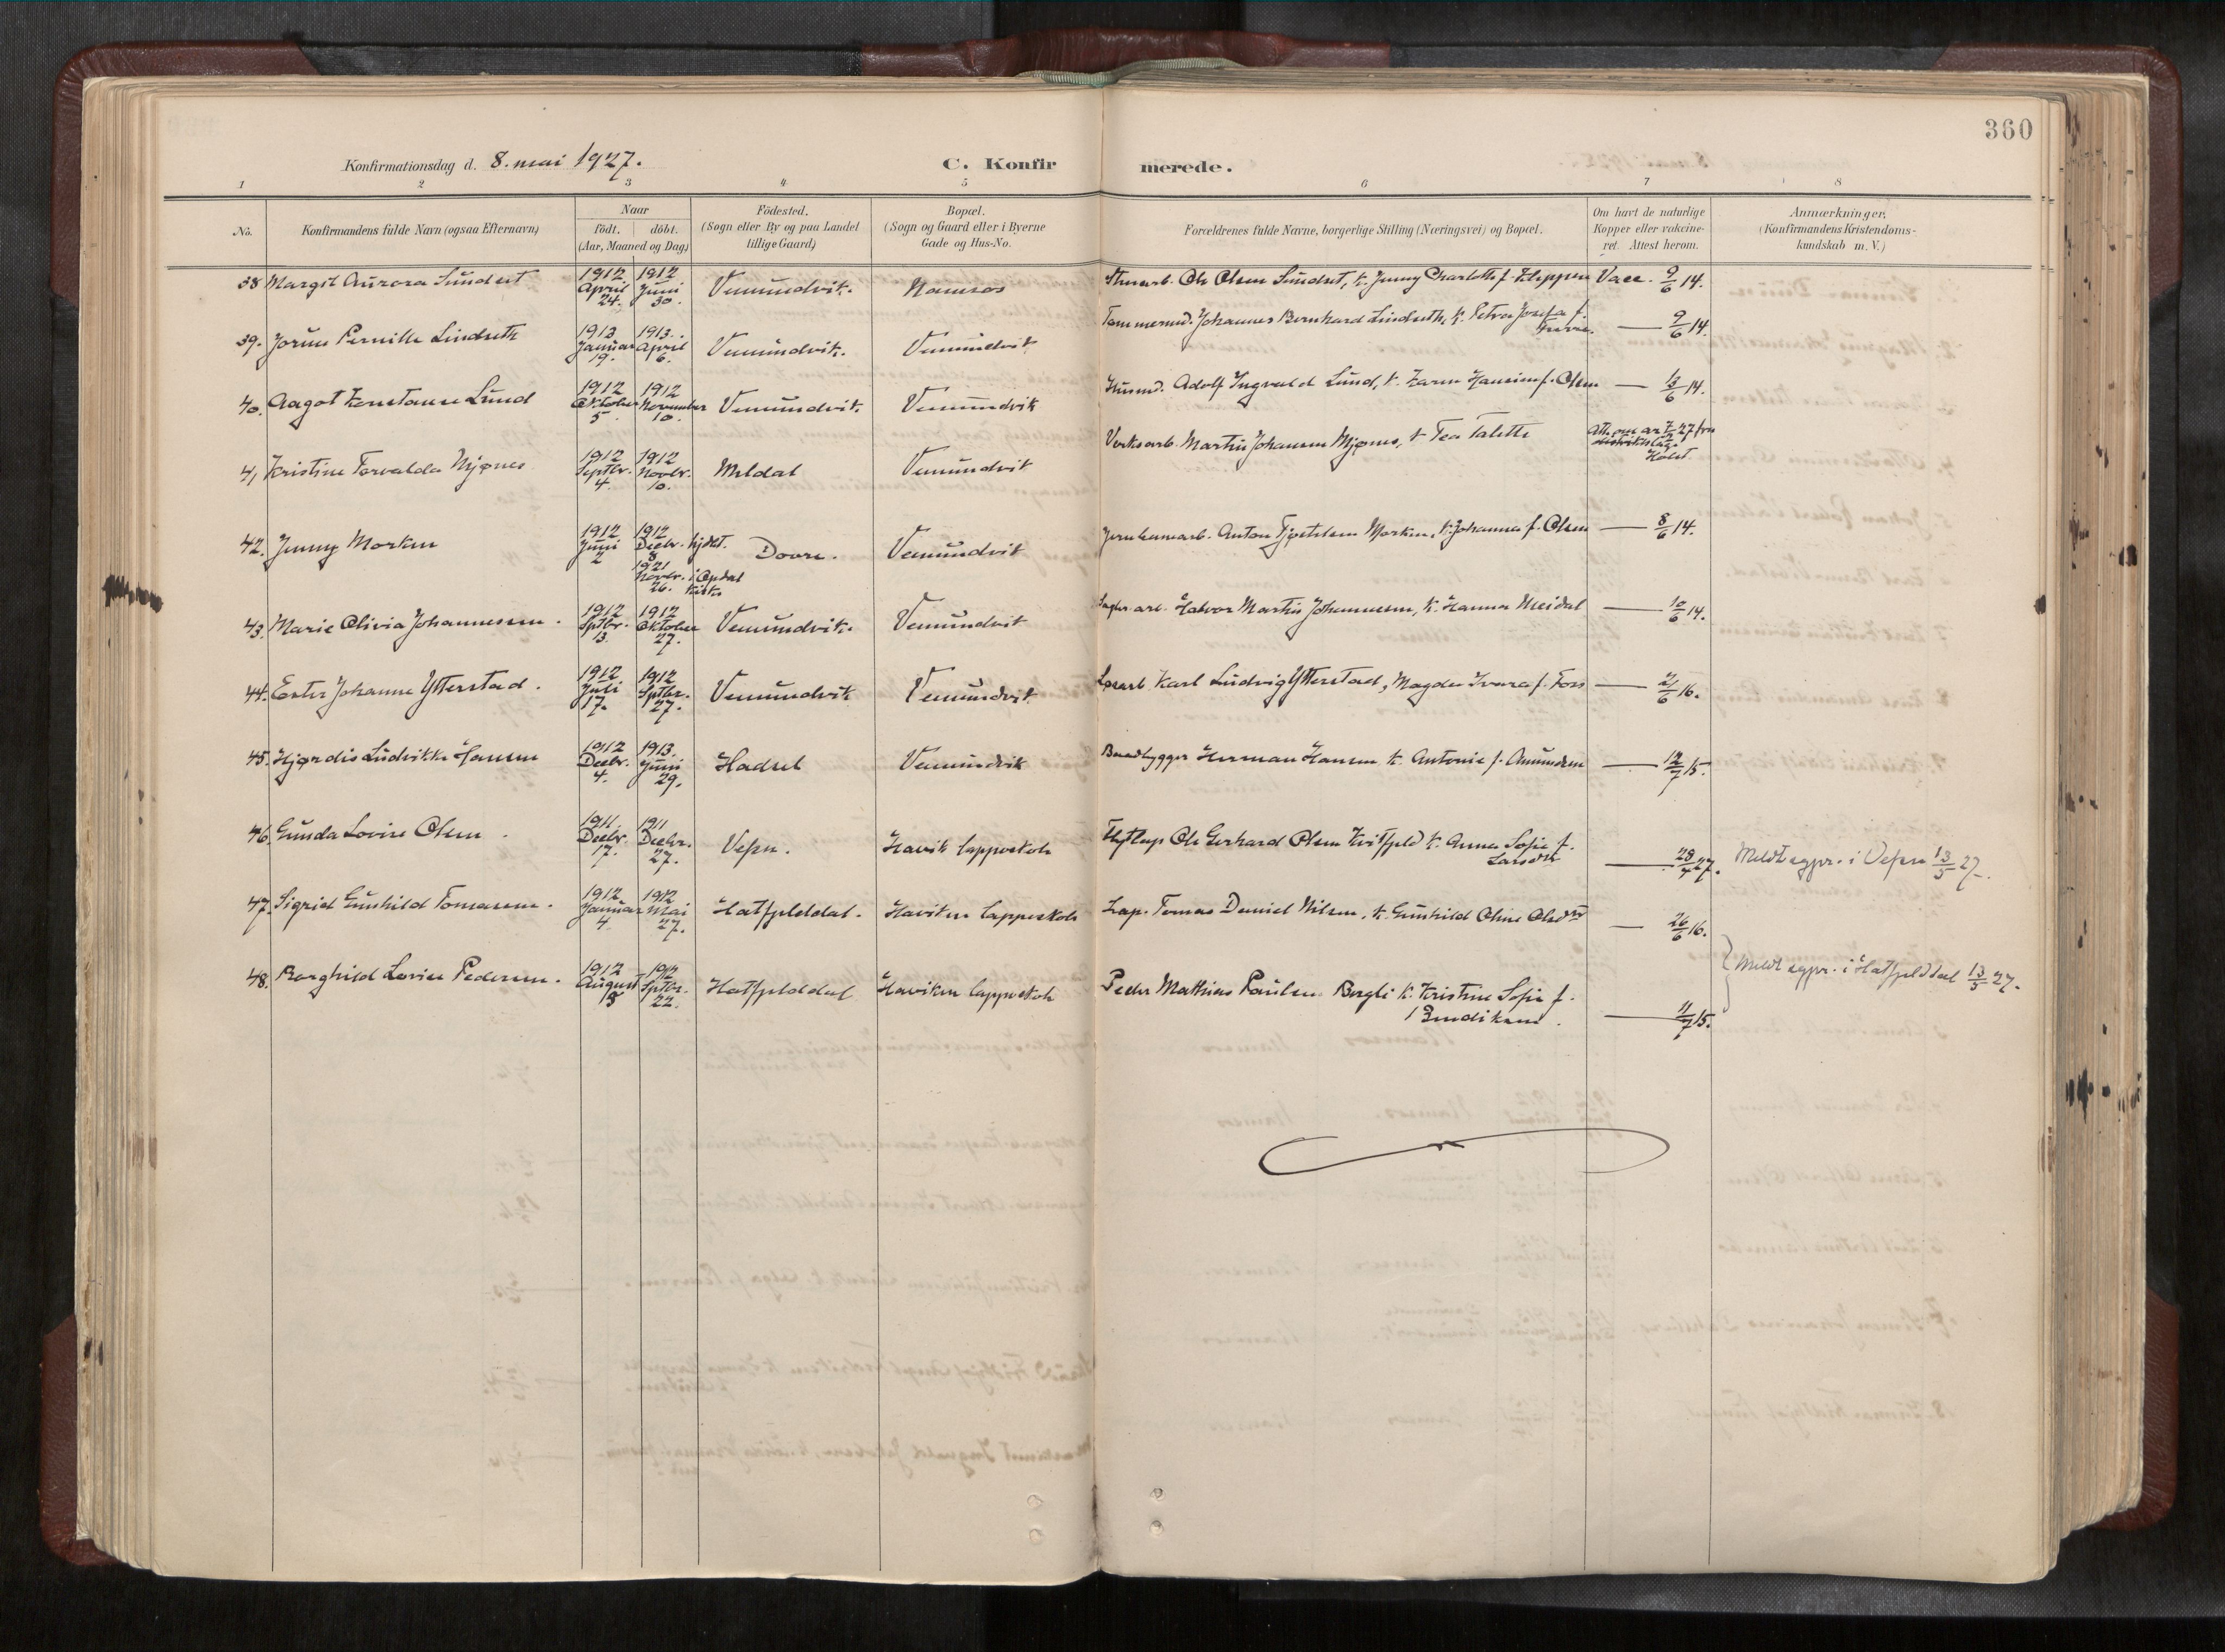 360
Konfirmationsdag d. 8. mai 1927.
C. Konfirmerede.
1 2 3 4 5 6 7 8
No.
Konfirmandens fulde Navn (ogsaa Efternavn)
Naar
født. døbt.
(Aar, Maaned og Dag)
Fødested.
(Sogn eller By og paa Landet
tillige Gaard)
Bopæl.
(Sogn og Gaard eller i Byerne
Gade og Hus-No.
Forældrenes fulde Navne, borgerlige Stilling (Næringsvei) og Bopæl.
Om havt de naturlige
Kopper eller vakcine-
ret. Attest herom.
Anmærkninger.
(Konfirmandens Kristendoms-
kundskab m. V.)
38 Margit Aurora Sundset 1912 April 24. 1912 Juni 30. Vemundvik. Namsos Ole Olsen Sundset, k. Jenny Charlotte f. Kleppen Vacc. 9/6 14.
39. Jorun Pernille Lindseth 1913 Januar 19. 1913. April 6. Vemundvik. Vemundvik Tømmermd. Johannes Bernhard Lindseth, k. Petra Josefa f. — 9/6 14.
40. Aagot Konstanse Lund 1912 Oktober 5 1912 November 10. Vemundvik. Vemundvik Husmd. Adolf Ingvald Lund, k. Karen Hansine f. Olsen — 13/6 14.
41 Kristine Torvalda Mjønes 1912 Septbr. 4. 1912 Novbr. 10. Meldal Vemundvik Verksarb. Martin Johansen Mjønes, k Tea Talette
Holst.
42. Jenny Morken 1912 Juni 2 1912 Decbr. 8 hjdøt. Dovre. Vemundvik Jernbanearb. Anton Tjøstelsen Morken, k. Johanna f. Olsen — 8/6 14.
1921 Novbr. 26. i Opdal kirke
43. Marie Olivia Johannessen. 1912 Sptbr. 13. 1912 Oktober 27. Vemundvik. Vemundvik Halvor Martin Johannessen, k. Hanna Meidal — 10/6 14.
44. Ester Johanne Ytterstad. 1912 Juli 17. 1912 Sptbr. 27. Vemundvik Vemundvik. Løsarb Karl Ludvig Ytterstad, Magda Ivara f. Foss — 21/6 16.
45. Hjørdis Ludvikke Hansen 1912 Decbr. 4. 1913. Juni 29. Hadsel Vemundvik Baadbygger Herman Hansen k. Antonie f. Amundsen — 12/7 15.
46. Gunda Lovise Olsen. 1911. Decbr. 17. 1911 Decbr. 27. Vefsn. Havik lappeskole Flytlap Ole Gerhard Olsen Kvitfjeld k. Anna Sofie f. Larsdtr — 28/4 27. Meldt sgpr. i Vefsn 13/5 27.
47. Sigrid Gunhild Tomassen. 1912 Januar 4. 1912 Mai 27. Hatfjelddal. Haviken lappeskole Lap. Tomas Daniel Nilsen, k. Gunhild Oline Olsdtr — 26/6 16.
48. Borghild Lovise Pedersen. 1912 August 1912 Sptbr. 22. Hatfjelddal Haviken lappeskole Peder Mathias Paulsen Bergli k. Kristine Sofie f. — 11/7 15.
Meldt sgpr. i Hatfjelddal 13/5 27.